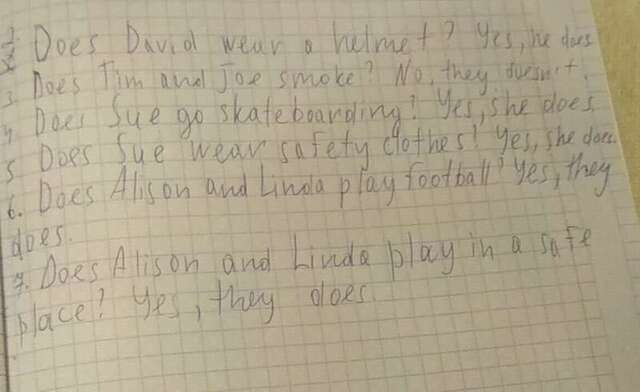 2. Does David wear a helmet? Yes, he does
3. Does Tim and Joe smoke? No, they doesn't.
4. Does Sue go skateboarding? Yes, she does.
5. Does Sue wear safety clothes? Yes, she does.
6. Does Alison and Linda play football? Yes, they
does.
7. Does Alison and Linda play in a safe
place? Yes, they does.